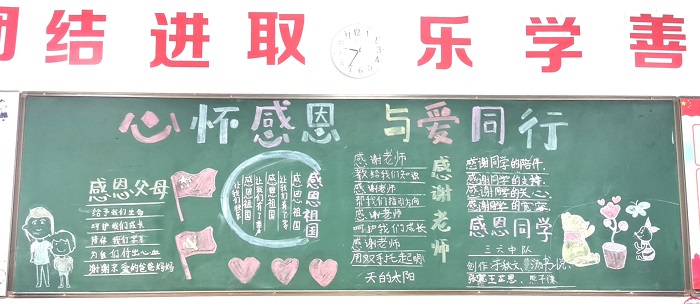 团结进取 乐学善
心怀感恩 与爱同行
感恩父母
给予我们生命
呵护我们成长
陪伴我们学习
为我们付出心血
谢谢亲爱的爸爸妈妈
感恩祖国
感恩祖国
感恩祖国
感谢老师
感谢老师
教给我们知识
感谢老师
帮我们指引方向
感谢老师
呵护我们成长
感谢老师
用双手托起明
天的太阳
感谢同学的陪伴,
感谢同学的支持,
感谢同学的关心,
感谢同学的宽容
感恩同学
三六中队
创作